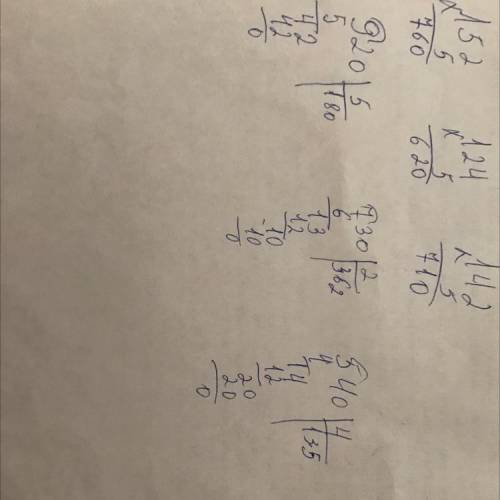 152
x 5
760
124
x 5
620
142
x 5
710
920 | 5
5 180
42
42
0
730 | 2
6 362
13
12
-10
10
0
540 | 4
4 135
14
12
20
20
0